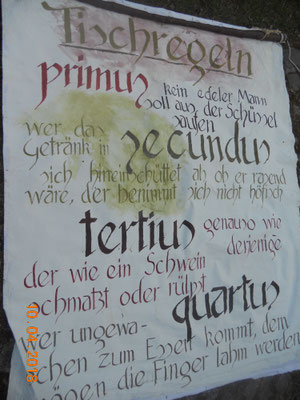 Tischregeln
primus kein edeler Mann
soll aus der Schüssel
saufen
wer das
Getränk in secundus
sich hineinschüttet als ob er rasend
wäre, der benimmt sich nicht höfisch
tertius genauso wie
derjenige
der wie ein Schwein
schmatzt oder rülpst
quartus
wer ungewa-
schen zum Essen kommt, dem
mögen die Finger lahm werden
10.04.2015